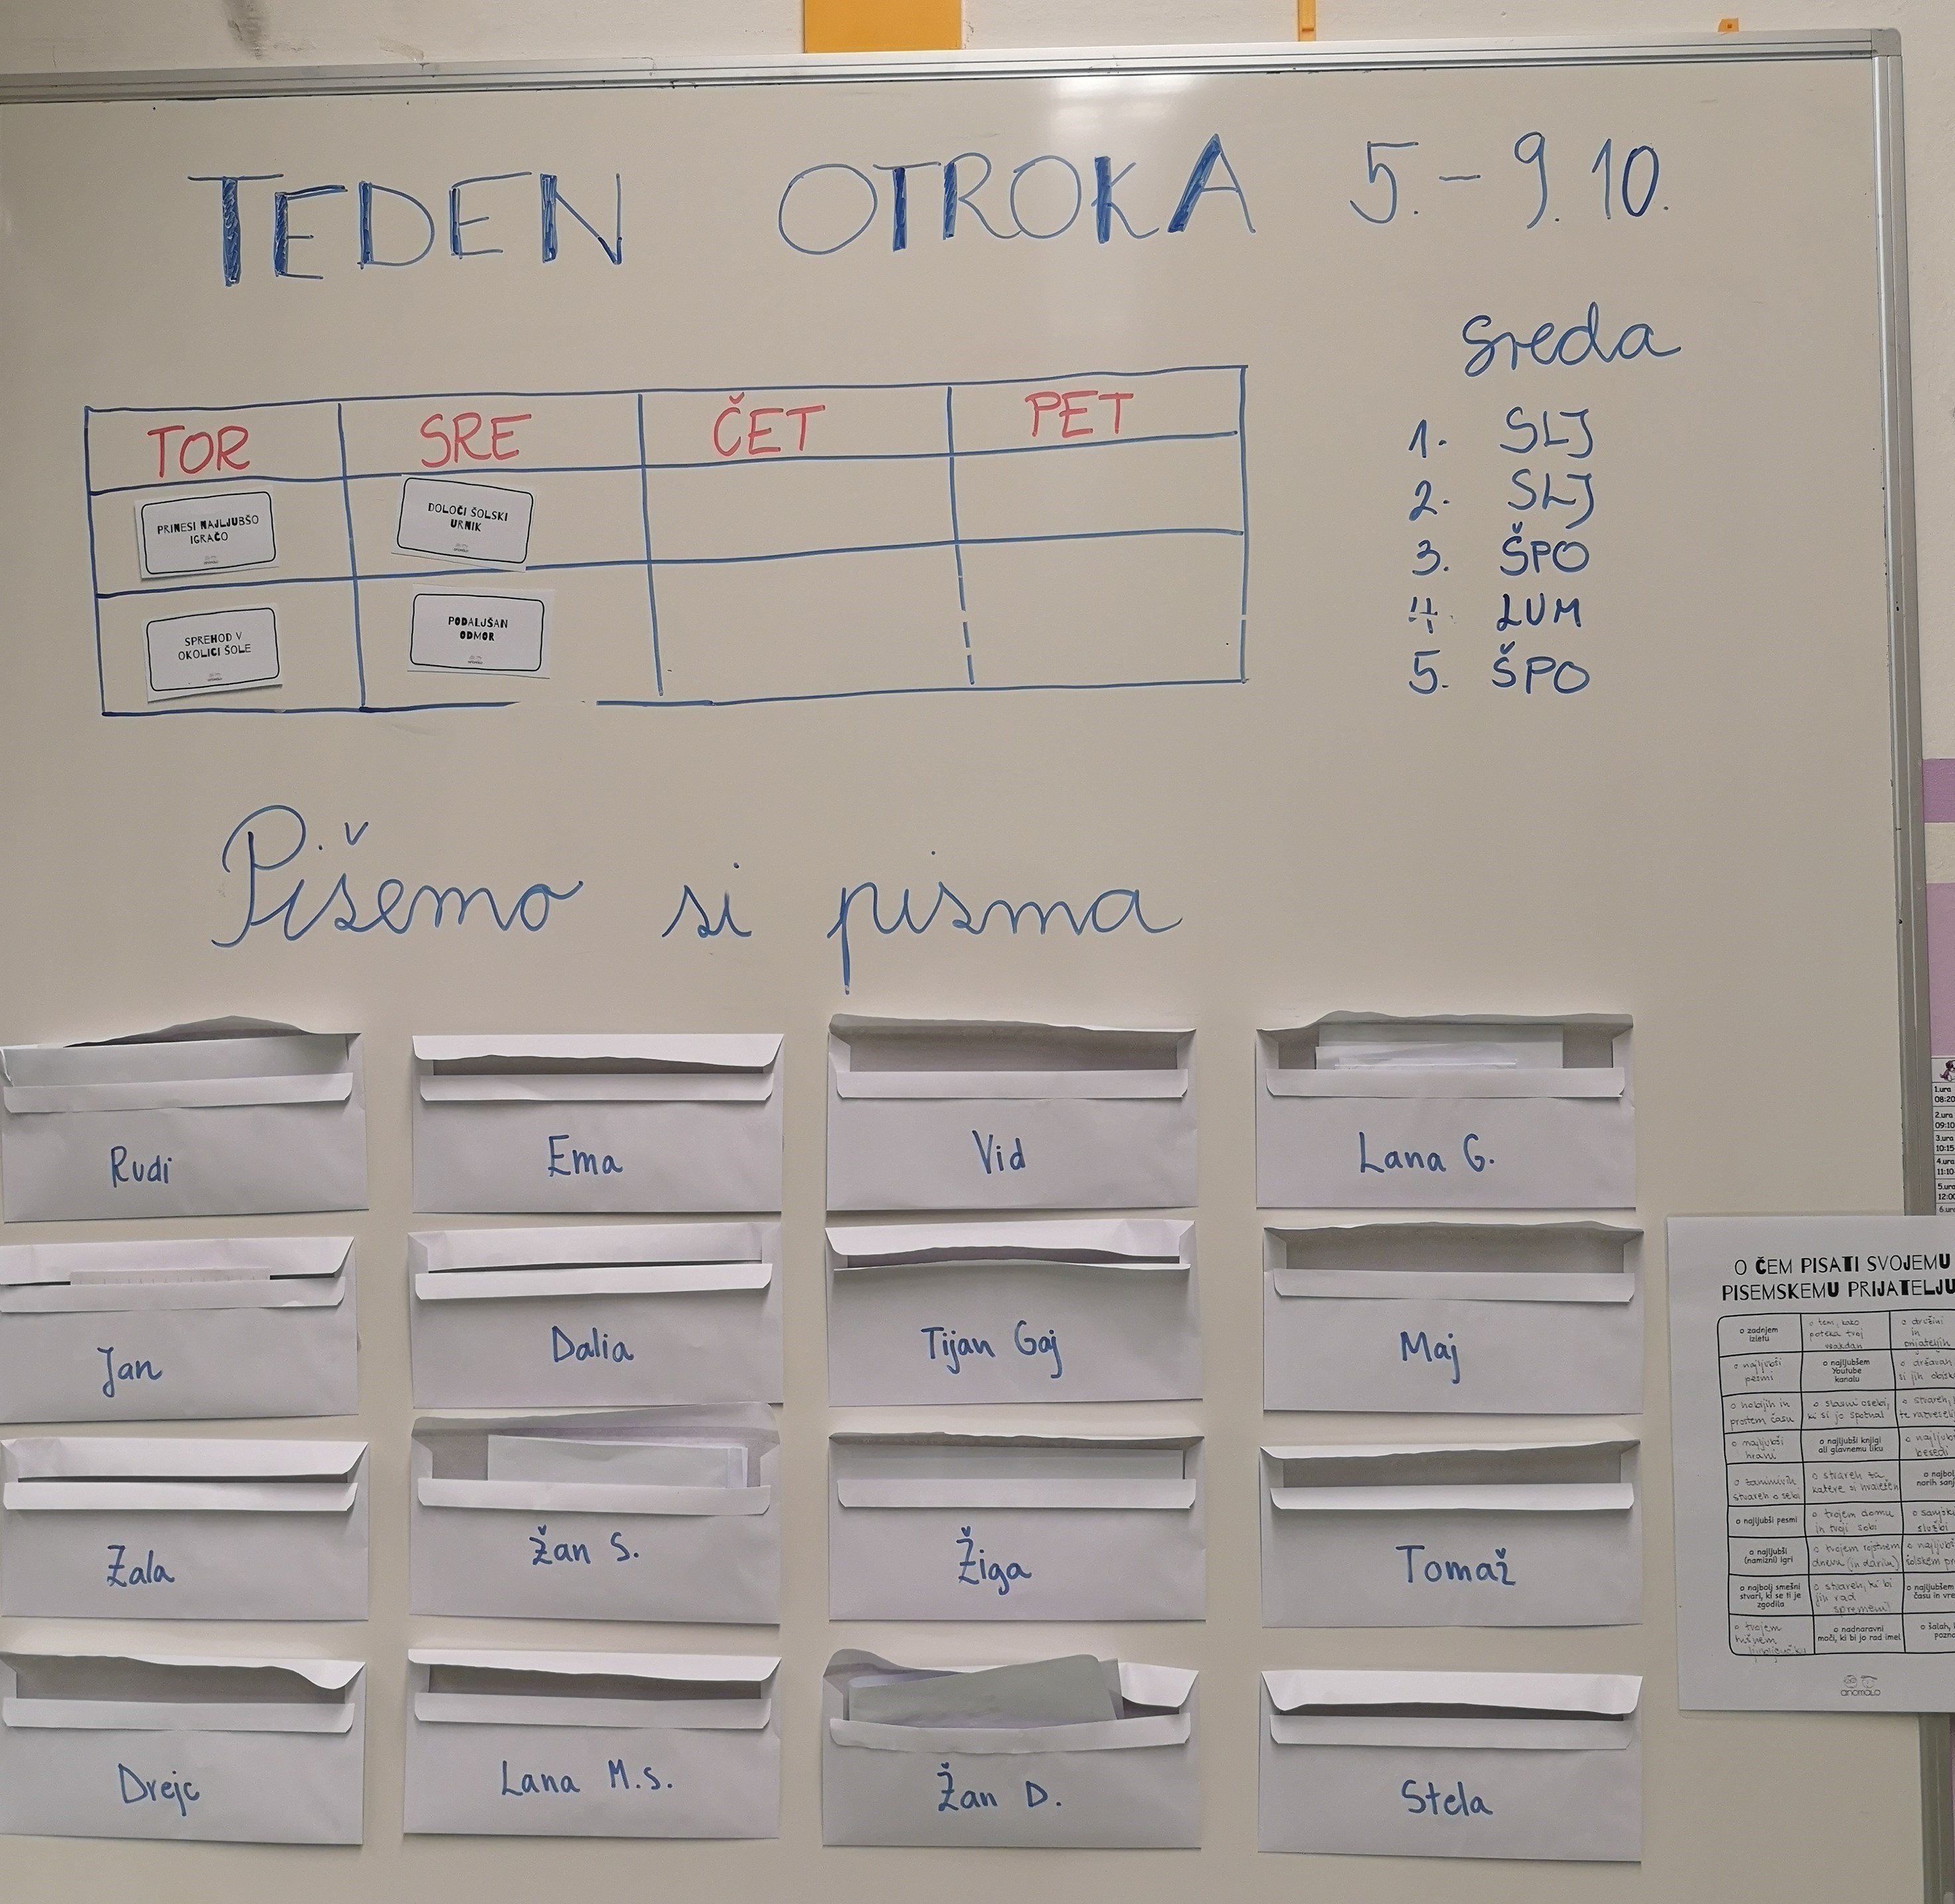 TEDEN OTROKA 5. - 9. 10.
sreda
TOR SRE ČET PET
PRINESI NAJLJUBŠO
IGRAČO
DOLOČI ŠOLSKI
URNIK
SPREHOD V
OKOLICI ŠOLE
PODALJŠAN
ODMOR
1. SLJ
2. SLJ
3. ŠPO
4. LUM
5. ŠPO
Pišemo si pisma
Rudi
Ema
Vid
Lana G.
Jan
Dalia
Tijan Gaj
Maj
Zala
Žan S.
Žiga
Tomaž
Drejc
Lana M.S.
Žan D.
Stela
1.ura
08:20
2.ura
09:10
3.ura
10:15
4.ura
11:10
5.ura
12:00
6.ura
O ČEM PISATI SVOJEMU
PISEMSKEMU PRIJATELJU
o zadnjem
izletu
o tem, kako
poteka tvoj
vsakdan
o družini
in
prijateljih
o najljubši
pesmi
o najljubšem
Youtube
kanalu
o državah
si jih
o hobijih in
prostem času
o slavni osebi,
ki si jo spoznal
o stvareh,
te
o najljubši
hrani
o najljubši knjigi
ali glavnemu liku
besedi
o zanimivih
stvareh o sebi
o stvareh za
katere si hvaležen
o najbolj
norih
o najljubši pesmi
o tvojem domu
in tvoji sobi
službi
o najljubši
(namizni) igri
o tvojem rojstnem
dnevu (in darilu)
šolskem
o najbolj smešni
stvari, ki se ti je
zgodila
o stvareh, ki bi
jih rad
spremenil
o najljubšem
času in
o tvojem
hišnem
ljubljenčku
o nadnaravni
moči, ki bi jo rad imel
o šalah,
anomalo